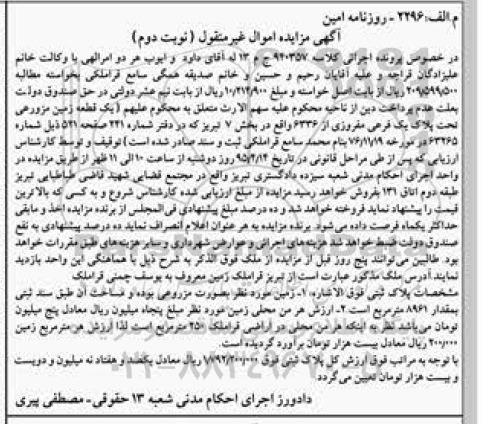 م.الف:۲۲۹۶ - روزنامه امین
آگهی مزایده اموال غیرمنقول (نوبت دوم)
در خصوص پرونده اجرائی کلاسه ۹۴۰۳۵۷ ج م ۱۳ له آقای داود و ایوب هر دو امرالهی با وکالت خانم
علیزادگان قراجه و علیه آقایان رحیم و حسین و خانم صدیقه همگی سامع قراملکی بخواسته مطالبه
۲۰۹/۵۹۹/۵۰۰ ریال از بابت اصل خواسته و مبلغ ۱۰/۲۱۴/۹۰۰ ریال از بابت نیم عشر دولتی در حق صندوق دولت
بعلت عدم پرداخت دین از ناحیه محکوم علیه سهم الارث متعلق به محکوم علیهم (یک قطعه زمین مزروعی
تحت پلاک یک فرعی مفروزی از ۶۳۳۶ واقع در بخش ۷ تبریز که در دفتر شماره ۲۴۱ صفحه ۵۲۱ ذیل شماره
۶۳۲۶۵ در مورخه ۷۶/۱۱/۱۹ بنام محمد سامع قراملکی ثبت و سند صادر شده است) توقیف و توسط کارشناس
ارزیابی که پس از طی مراحل قانونی در تاریخ ۹۵/۲/۱۴ روز دوشنبه از ساعت ۱۰ الی ۱۱ ظهر از طریق مزایده در
واحد اجرای احکام مدنی شعبه سیزده دادگستری تبریز واقع در مجتمع قضایی شهید قاضی طباطبایی تبریز
طبقه دوم اتاق ۱۳۱ بفروش خواهد رسید مزایده از مبلغ ارزیابی شده کارشناس شروع و به کسی که بالاترین
قیمت را پیشنهاد نماید فروخته خواهد شد و ده درصد مبلغ پیشنهادی فی المجلس از برنده مزایده اخذ و مابقی
حداکثر یکماه فرصت داده می شود. برنده مزایده به هر عنوان اعلام انصراف نماید ده درصد پیشنهادی به نفع
صندوق دولت ضبط خواهد شد هزینه های اجرائی و عوارض شهرداری و سایر هزینه های طبق مقررات خواهد
بود. طالبین می توانند پنج روز قبل از مزایده از ملک فوق الذکر به شرح ذیل با هماهنگی این واحد بازدید
نمایند.آدرس ملک مذکور عبارت است از تبریز قراملک زمین معروف به یوسف چمنی قراملک
مشخصات پلاک ثبتی فوق الاشاره، ۱- زمین مورد نظر بصورت مزروعی بوده و مساحت آن طبق سند ثبتی
بمقدار ۸۹۶۱ مترمربع است.۲- ارزش هر من محلی زمین مورد نظر مبلغ پنجاه میلیون ریال معادل پنج میلیون
تومان می باشد نظر به اینکه هر من محلی در اراضی قراملک ۲۵۰ مترمربع است لذا ارزش هر مترمربع زمین
۲۰۰/۰۰۰ ریال معادل بیست هزار تومان برآورد گردیده است.
با توجه به مراتب فوق ارزش کل پلاک ثبتی فوق ۱/۷۹۲/۲۰۰/۰۰۰ ریال معادل یکصد و هفتاد نه میلیون و دویست
و بیست هزار تومان تعیین می گردد.
دادورز اجرای احکام مدنی شعبه ۱۳ حقوقی- مصطفی پیری